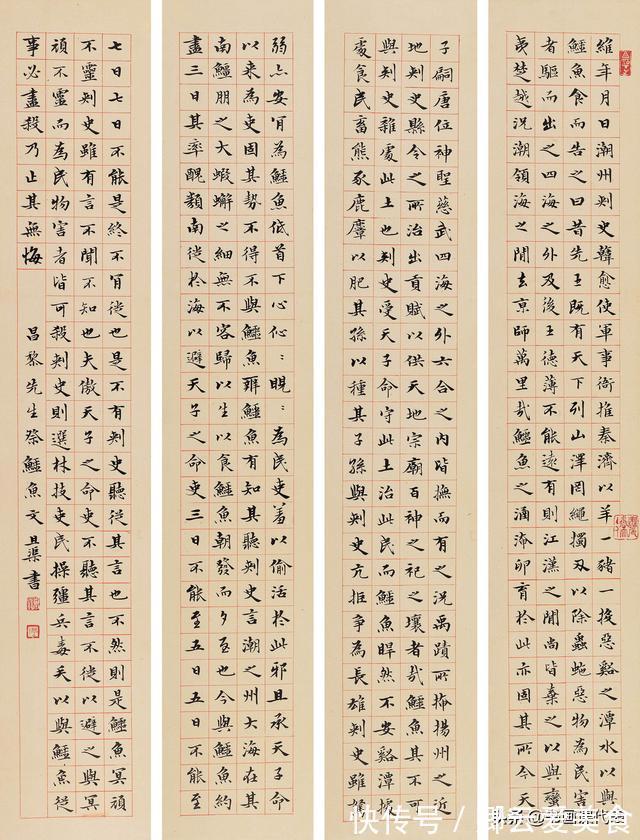 維年月日潮州刺史韓愈使軍事衙推秦濟以羊一豬一投惡谿之潭水以與
鱷魚食而告之曰昔先王既有天下列山澤罔繩擉刃以除蟲蛇惡物為民害
者驅而出之四海之外及後王德薄不能遠有則江漢之間尚皆棄之以與蠻
夷楚越況潮領海之間去京師萬里哉鱷魚之涵淹卵育於此亦固其所今天
子嗣唐位神聖慈武四海之外六合之內皆撫而有之況禹蹟所揜揚州之近
地刺史縣令之所治出貢賦以供天地宗廟百神之祀之壤者哉鱷魚其不可
與刺史雜處此土也刺史受天子命守此土治此民而鱷魚睅然不安谿潭據
處食民畜熊豕鹿麞以肥其孫以種其子孫與刺史亢拒爭為長雄刺史雖駑
弱亦安肯為鱷魚低首下心伈:睍:為民吏羞以偷活於此邪且承天子命
以来為吏固其勢不得不與鱷魚辨鱷魚有知其聽刺史言潮之州大海在其
南鱷朋之大蝦蠏之細無不容歸以生以食鱷魚朝發而夕至也今與鱷魚約
盡三日其率醜類南徙於海以避天子之命吏三日不能至五日五日不能至
七日七日不能是終不肯徙也是不有刺史聽從其言也不然則是鱷魚冥頑
不靈刺史雖有言不聞不知也夫傲天子之命吏不聽其言不徙以避之與冥
頑不靈而為民物害者皆可殺刺史則選材技吏民操彊兵毒矢以與鱷魚從
事必盡殺乃止其無悔
昌黎先生祭鱷魚文 且渠書